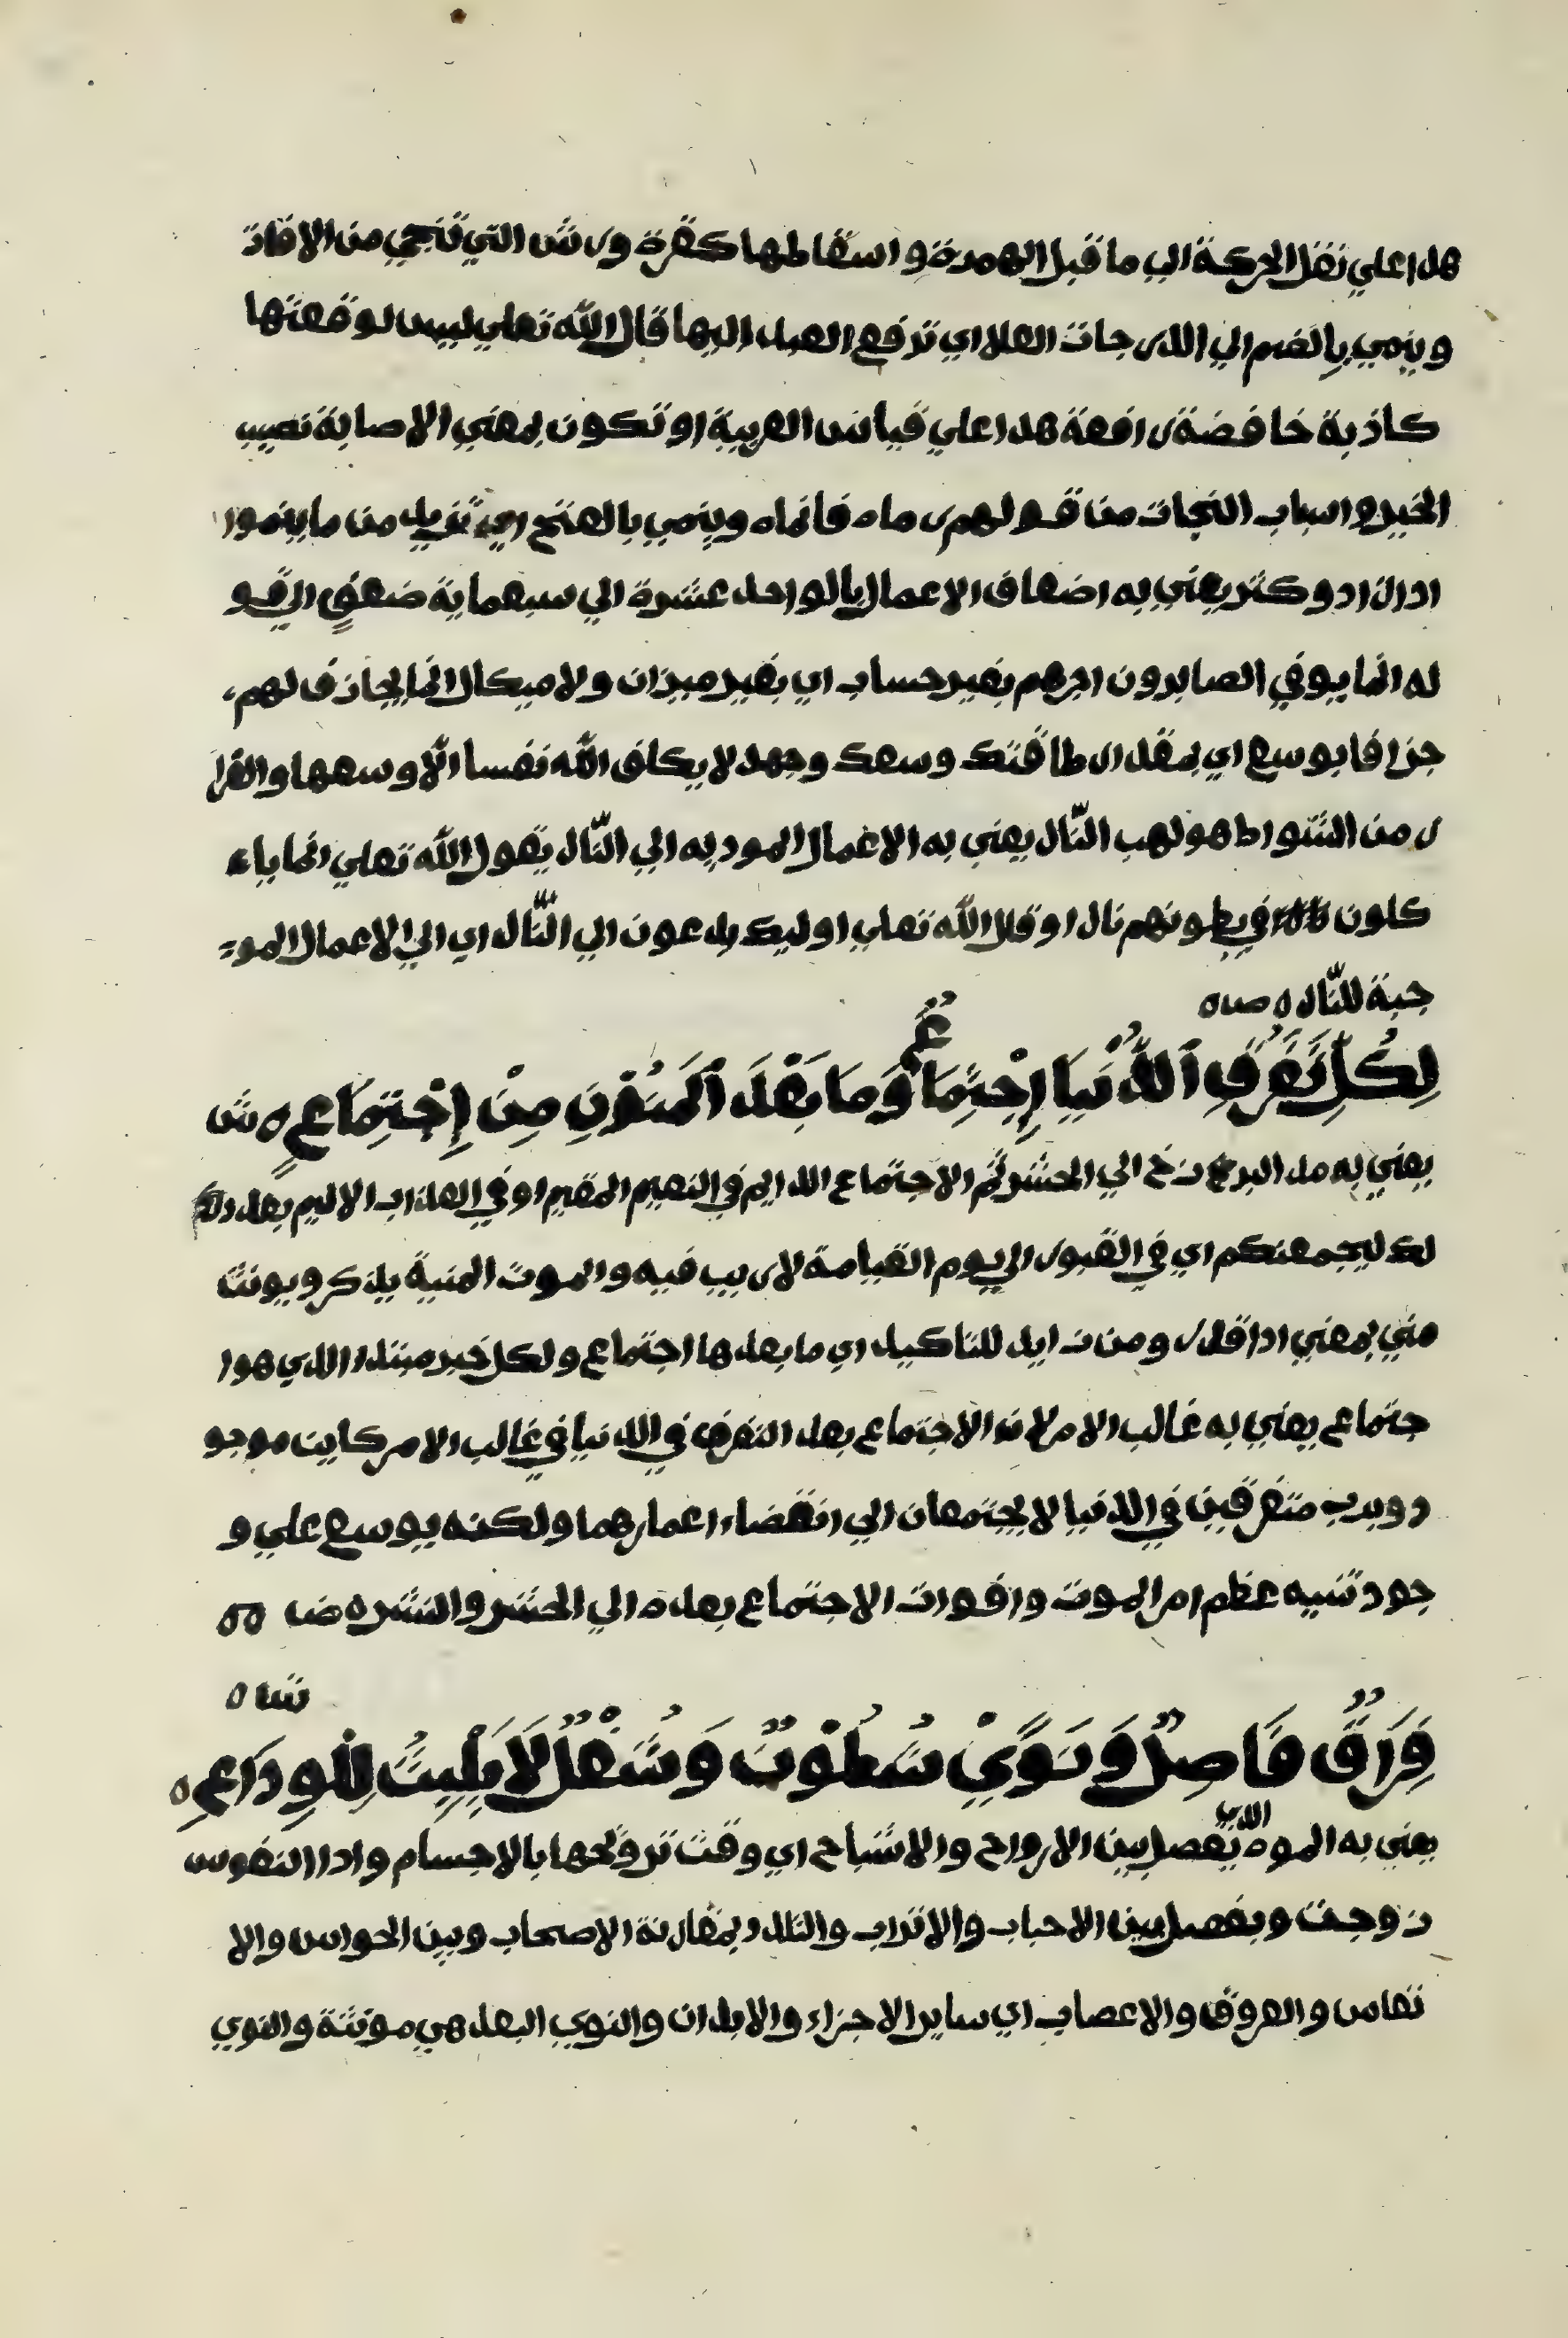 هدا علي نقل الحركة الي ما قبل الهمزة و اسقاطها كقرة ورش التي تنجي من الافات
وينمي بالضم الي الدر جات العلا اي ترفع العبد اليها قال الله تعلي ليس لوقعتها
كاذبة خافضة رافعة هدا علي قياس العربية او تكون بمعني الاصابة نصيب
الخير و اسباب النجات من قولهم رماه فانماه وينمي بالفتح اي تزيد من ما ينموا
ادا زاد و كثر يعني به اضعاف الاعمال بالواحد عشرة الي سبعماية ضعف الي قو
له انما يوفي الصابرون اجرهم بغير حساب اي بغير ميزان ولا ميكال انما يجازف لهم
جزافا بوسع اي بمقدار طاقتك وسعك وجهد لا يكلف الله نفسا الا وسعها والقرا
ر من الشواط هو لهب النّار يعني به الاعمال المودية الي النّار يقول الله تعلي انما ياء
كلون في بطونهم نارا و قال الله تعلي اوليك يدعون الي النّار اي الي الاعمال المو
جبة للنّار ه صد ه
لِكُلِّ تَفَرُّقِ ٱلدُّنْيَا إِجْتِمَاعٌ وَمَا بَعْدَ ٱلْمَنُوْنِ مِنْ إِجْتِمَاعٍ ه ش
يعني به مد البرزخ الي المحشر ثم الاجتماع الدايم في النعيم المقيم او في العذاب الاليم بعد
لك ليجمعنكم اي في القبور الي يوم القيامة لا ريب فيه و الموت المنية يذكر و يونث
مني بمعني ادا قدر و من زايد للتاكيد اي ما بعدها اجتماع و لكل خبر مبتدا الدي هوا
جتماع يعني به غالب الامر لان الاجتماع بعد التفرق في الدنيا في غالب الامر كاين موجو
د ويرب متفرقين في الدنيا لا يجتمعان الي انقضاء اعمارهما ولكنه يوسع علي و
جود تنبيه عظم امر الموت و افوات الاجتماع بعده الي الحشر والنشر ه ضا ه ه
شا ه
فِرَاقٌ فَاصِلٌ وَنَوًيْ شُطُوْنٌ وَشُغْلٌ لَا يُلَبِّثُ لِلْوِدَاعِ ه
يعني به الموت الذي يفصل بين الارواح والاشباح اي وقت تزوجها بالاجسام وادا النفوس
زوجت ويفصل بين الاحباب والاتراب والتلدد بمقارنة الاصحاب وبين الحواس والا
نفاس و العروق و الاعصاب اي ساير الاجزاء والابدان والنوي البعد هي مونثة والنوي